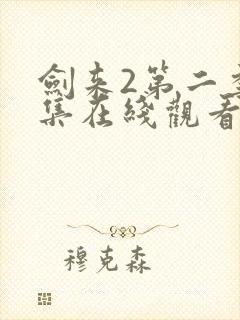 劍来2第二季
集在綫觀看
穆克森